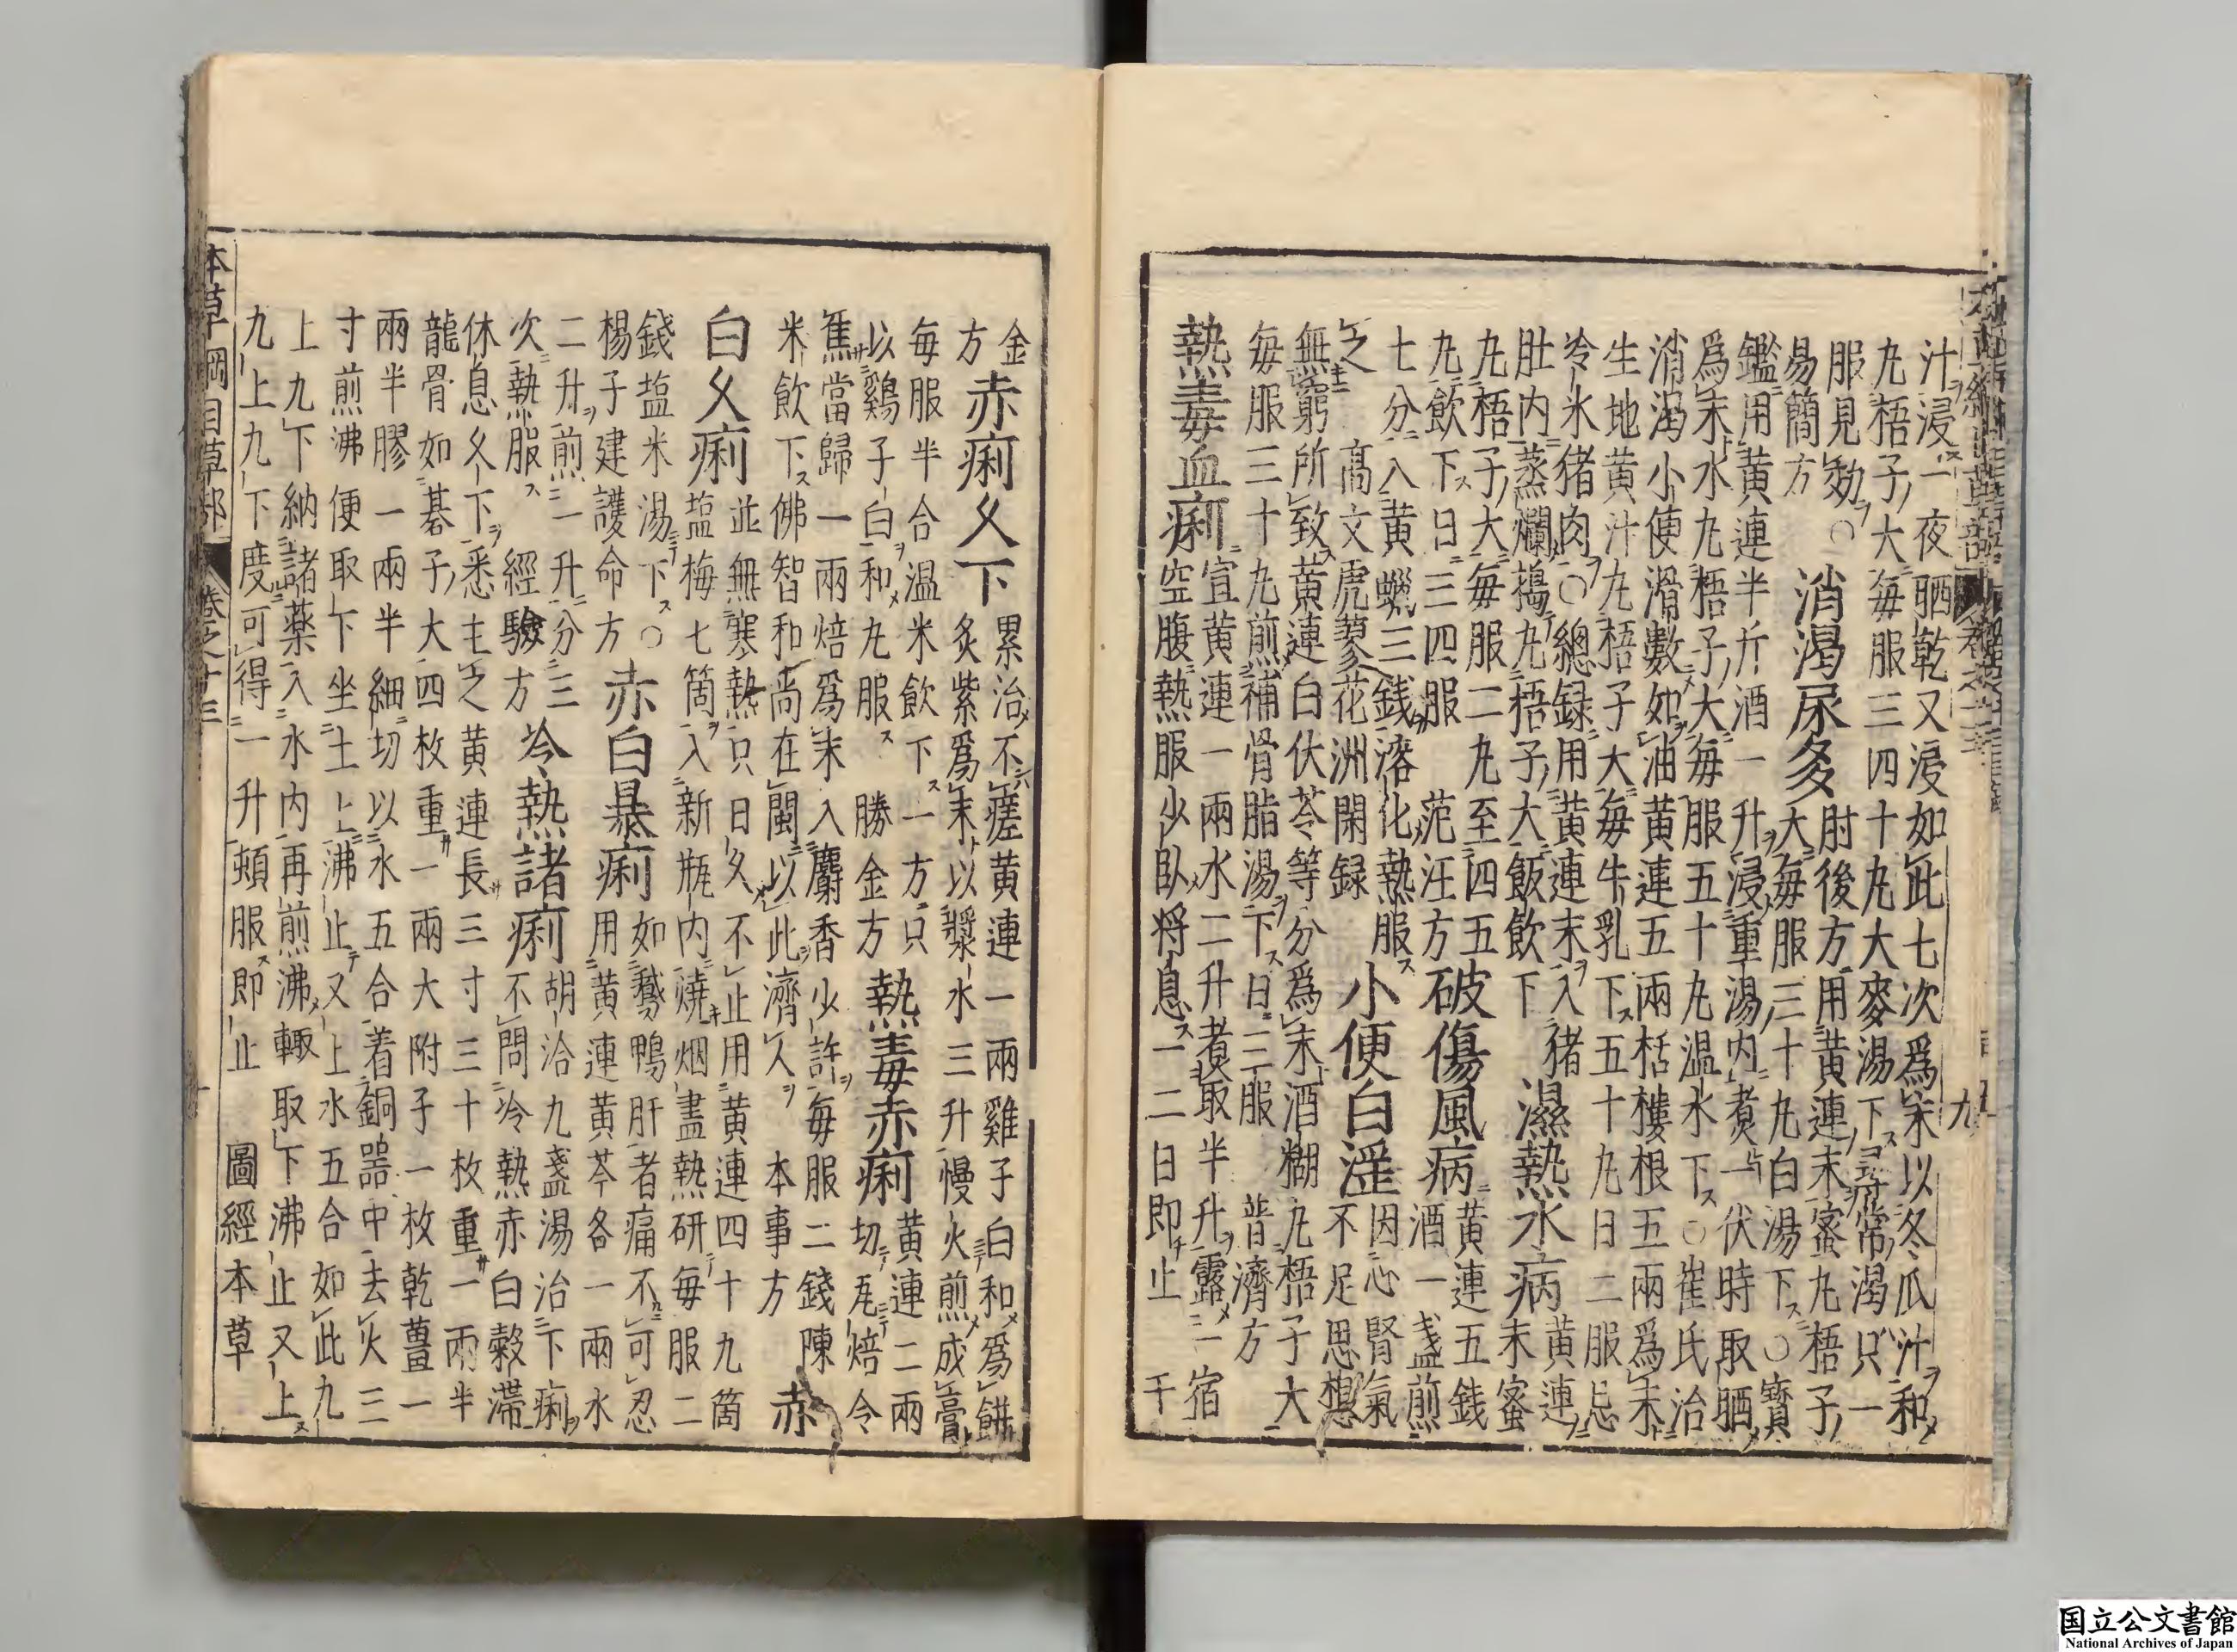 汁浸一夜晒乾又浸如此七次爲末以冬瓜汁和
丸梧子大每服三四十丸大麥湯下尋常渴只一
服見効○
易簡方
消渴尿多
肘後方用黄連末蜜丸梧子
大每服三十丸白湯下○寶
鑑用黄連半斤酒一升浸重湯内煮一伏時取晒
爲末水丸梧子大每服五十丸温水下○崔氏治
消渴小便滑數如油黄連五兩栝樓根五兩爲末
生地黄汁丸梧子大每牛乳下五十丸日二服忌
冷水猪肉○總録用黄連末入猪
肚内蒸爛搗丸梧子大飯飲下
濕熱水病
黄連
末蜜
丸梧子大每服二丸至四五
丸飲下日三四服 范汪方
破傷風病
黄連五錢
酒一盞煎
七分入黄蠟三錢溶化熱服
之 高文虎蓼花洲閑録
小便白淫
因心腎氣
不足思想
無窮所致黄連白伏苓等分爲末酒糊丸梧子大
每服三十丸煎補骨脂湯下日三服 普濟方
熱毒血痢
宣黄連一兩水二升煮取半升露一宿
空腹熱服少臥將息一二日即止 千
本草綱目草部 卷之十三
金
方
赤痢久下
累治不瘥黄連一兩雞子白和爲餅
炙紫爲末以漿水三升慢火煎成膏
每服半合温米飲下一方只
以鷄子白和丸服 勝金方
熱毒赤痢
黄連二兩
切瓦焙令
焦當歸一兩焙爲末入麝香少許每服二錢陳
米飲下佛智和尚在閩以此濟人 本事方
赤
白久痢
並無寒熱只日久不止用黄連四十九箇
塩梅七箇入新瓶内燒烟盡熱研每服二
錢塩米湯下○
楊子建護命方
赤白暴痢
如鵞鴨肝者痛不可忍
用黄連黄芩各一兩水
二升煎一升分三
次熱服 經驗方
冷熱諸痢
胡洽九盞湯治下痢
不問冷熱赤白穀滯
休息久下悉主之黄連長三寸三十枚重一兩半
龍骨如碁子大四枚重一兩大附子一枚乾薑一
兩半膠一兩半細切以水五合着銅器中去火三
寸煎沸便取下坐土上沸止又上水五合如此九
上九下納諸藥入水内再煎沸輙取下沸止又上
九上九下度可得一升頓服即止 圖經本草
国立公文書館
National Archives of Japan